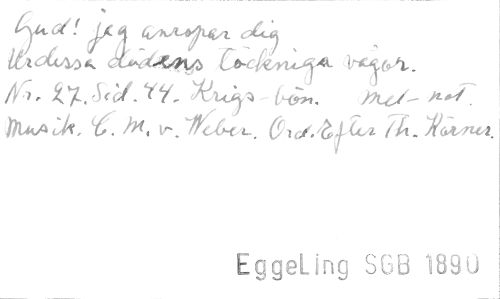 Gud! jag anropar dig
Urdessa dödens töckniga vågor.
Nr. 27. Sid. 44. Krigs-bön. mel-not.
Musik. C. M. v. Weber. Ord. Efter Th. Körner.
EggeLing SGB 1890